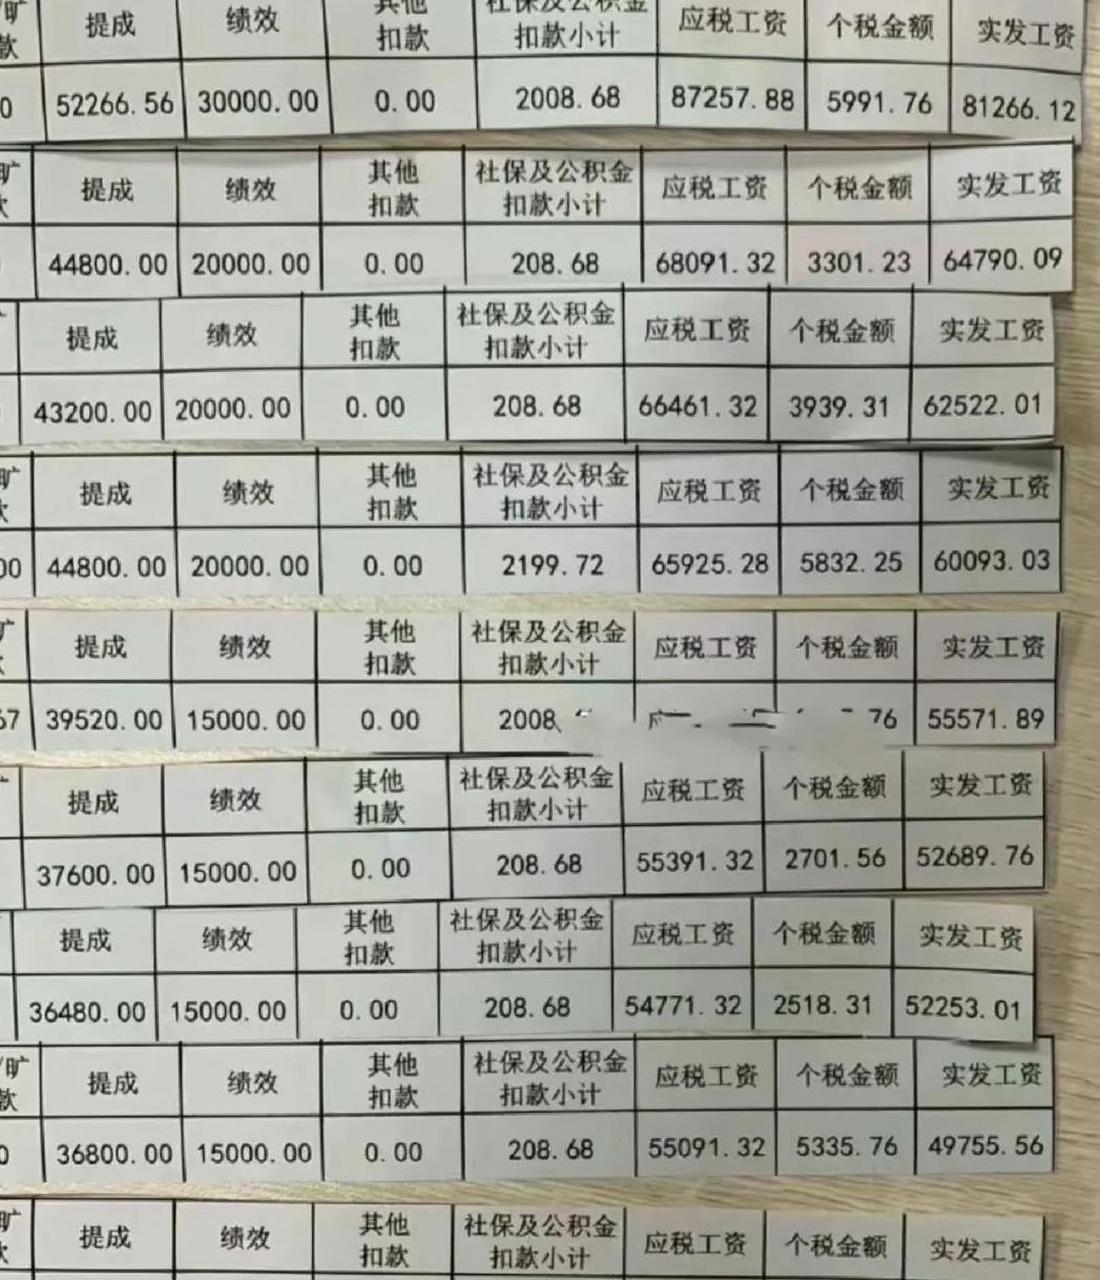 旷 提成 绩效 其他 社保及公积金 应税工资 个税金额 实发工资
款 扣款 扣款小计
0 52266.56 30000.00 0.00 2008.68 87257.88 5991.76 81266.12
旷 提成 绩效 其他 社保及公积金 应税工资 个税金额 实发工资
扣款 扣款小计
44800.00 20000.00 0.00 208.68 68091.32 3301.23 64790.09
提成 绩效 其他 社保及公积金 应税工资 个税金额 实发工资
扣款 扣款小计
43200.00 20000.00 0.00 208.68 66461.32 3939.31 62522.01
旷 提成 绩效 其他 社保及公积金 应税工资 个税金额 实发工资
扣款 扣款小计
00 44800.00 20000.00 0.00 2199.72 65925.28 5832.25 60093.03
提成 绩效 其他 社保及公积金 应税工资 个税金额 实发工资
扣款 扣款小计
67 39520.00 15000.00 0.00 2008. 76 55571.89
提成 绩效 其他 社保及公积金 应税工资 个税金额 实发工资
扣款 扣款小计
37600.00 15000.00 0.00 208.68 55391.32 2701.56 52689.76
提成 绩效 其他 社保及公积金 应税工资 个税金额 实发工资
扣款 扣款小计
36480.00 15000.00 0.00 208.68 54771.32 2518.31 52253.01
/旷 提成 绩效 其他 社保及公积金 应税工资 个税金额 实发工资
款 扣款 扣款小计
0 36800.00 15000.00 0.00 208.68 55091.32 5335.76 49755.56
旷 提成 绩效 其他 社保及公积金 应税工资 个税金额 实发工资
扣款 扣款小计